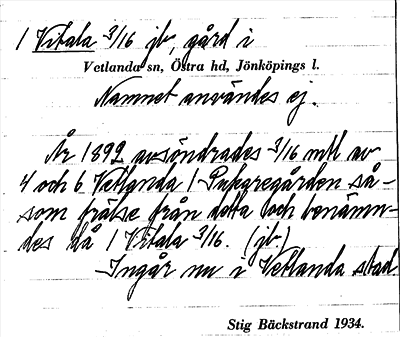 1 Vitala 3/16 jb, gård i
Vetlanda sn, Östra hd, Jönköpings l.
Namnet användes ej.
År 1892 avsöndrades 3/16 mtl av
4 och 6 Vetlanda 1 Pukaregården så-
som frälse från detta och benämn-
des då 1 Vitala 3/16. (jb)
Ingår nu i Vetlanda stad.
Stig Bäckstrand 1934.